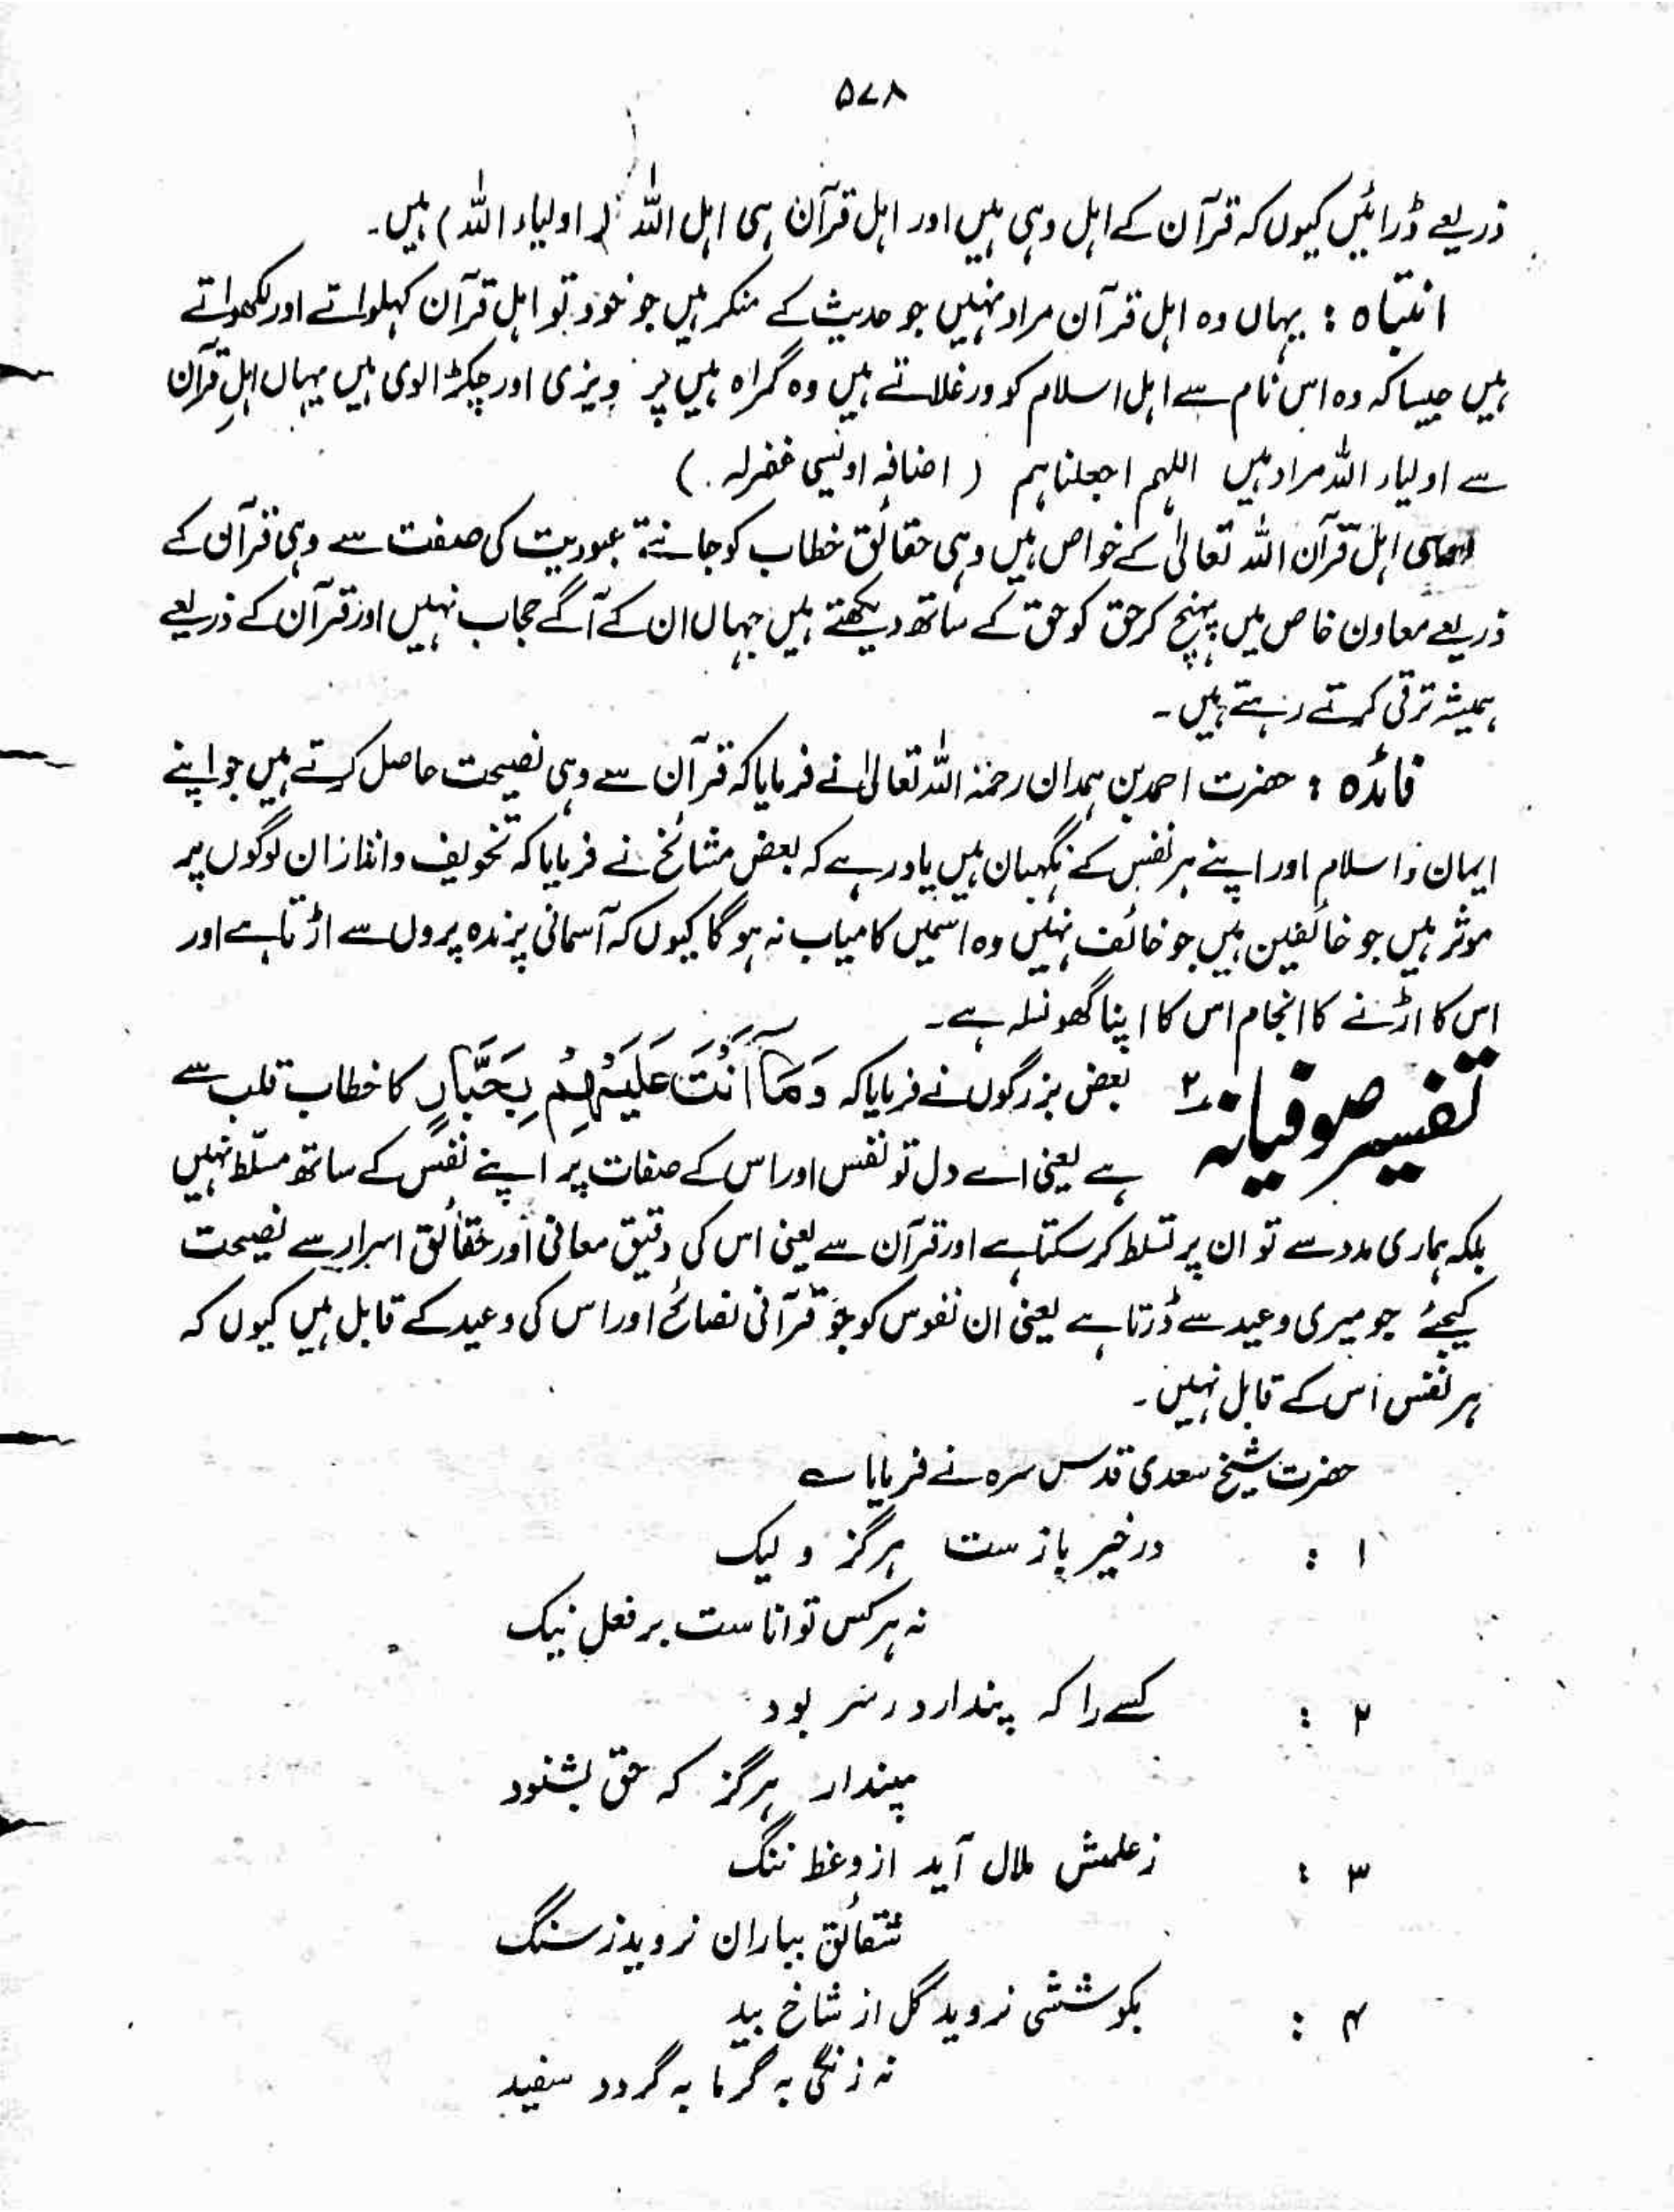 ۵۷۸
ذریعے ڈرائیں کیوں کہ قرآن کے اہل وہی ہیں اور اہل قرآن ہی اہل اللہ ( اولیاء اللہ ) ہیں۔
انتباہ : یہاں وہ اہل قرآن مراد نہیں جو حدیث کے منکر ہیں جو خود تو اہل قرآن کہلواتے اور لکھواتے
ہیں جیسا کہ وہ اس نام سے اہل اسلام کو ورغلاتے ہیں وہ گمراہ ہیں پرویزی اور چکڑالوی ہیں یہاں اہلِ قرآن
سے اولیاء اللہ مراد ہیں اللہم اجعلنا ہم ( اضافہ اویسی غفرلہ . )
اہل قرآن اللہ تعالیٰ کے خواص ہیں وہی حقائق خطاب کو جانتے عبوریت کی صفت سے وہی قرآن کے
ذریعے معاون خاص میں پہنچ کر حق کو حق کے ساتھ دیکھتے ہیں جہاں ان کے آگے حجاب نہیں اور قرآن کے ذریعے
ہمیشہ ترقی کرتے رہتے ہیں۔
فائدہ : حضرت احمد بن ہمدان رحمۃ اللہ تعالیٰ نے فرمایا کہ قرآن سے وہی نصیحت حاصل کرتے ہیں جو اپنے
ایمان و اسلام اور اپنے ہر نفس کے نگہبان ہیں یاد رہے کہ بعض مشائخ نے فرمایا کہ تخویف و انذار ان لوگوں پر
موثر ہیں جو خائفین ہیں جو خائف نہیں وہ اسمیں کامیاب نہ ہو گا کیوں کہ آسمانی پرندہ پروں سے اڑتا ہے اور
اس کا اڑنے کا انجام اس کا اپنا گھونسلہ ہے۔
تفسیر صوفیانہ ۲ بعض بزرگوں نے فرمایا کہ وَمَآ اَنْتَ عَلَيْهِمْ بِجَبَّارٍ کا خطاب قلب سے
ہے یعنی اے دل تو نفس اور اس کے صفات پر اپنے نفس کے ساتھ مسلّط نہیں
بلکہ ہماری مدد سے تو ان پر تسلط کر سکتا ہے اور قرآن سے یعنی اس کی دقیق معانی اور حقائق اسرار سے نصیحت
کیجئے جو میری وعید سے ڈرتا ہے یعنی ان نفوس کو جو قرآنی نصائح اور اس کی وعید کے قابل ہیں کیوں کہ
ہر نفس اس کے قابل نہیں۔
حضرت شیخ سعدی قدس سرہ نے فرمایا ؎
۱ : در خیر باز ست ہرگز و لیک
نہ ہر کس توانا ست بر فعل نیک
۲ : کسے را کہ پندار در سر بود
مپندار ہرگز کہ حق بشنود
۳ : ز علمش ملال آید از وعظ ننگ
شقائق بباران نروید ز سنگ
۴ : بکوشش نروید گل از شاخ بید
نہ زنگی بہ گرما بہ گردد سفید